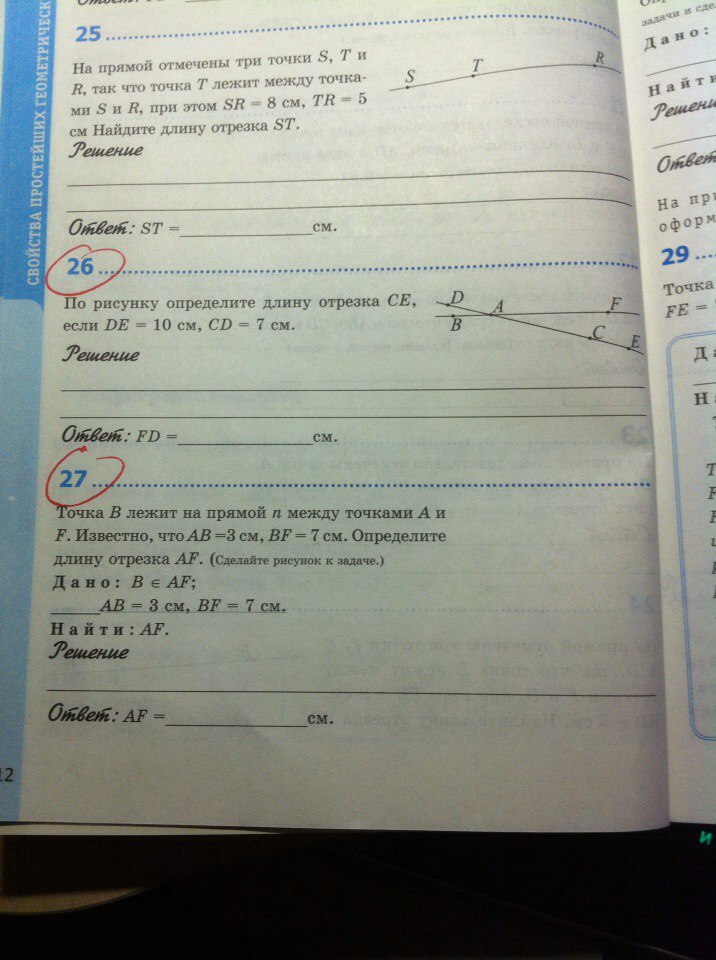 СВОЙСТВА ПРОСТЕЙШИХ ГЕОМЕТРИЧЕСК
25
На прямой отмечены три точки S, T и
R, так что точка T лежит между точка-
ми S и R, при этом SR = 8 см, TR = 5
см Найдите длину отрезка ST.
S T R
Решение
Ответ: ST = см.
26
По рисунку определите длину отрезка CE,
если DE = 10 см, CD = 7 см.
D A F
B C E
Решение
Ответ: FD = см.
27
Точка B лежит на прямой n между точками A и
F. Известно, что AB =3 см, BF = 7 см. Определите
длину отрезка AF. (Сделайте рисунок к задаче.)
Дано: B ∈ AF;
AB = 3 см, BF = 7 см.
Найти: AF.
Решение
Ответ: AF = см.
12
задачи и сде
Дано:
Найти
Решени
Ответ
На при
оформ
29
Точка
FE =